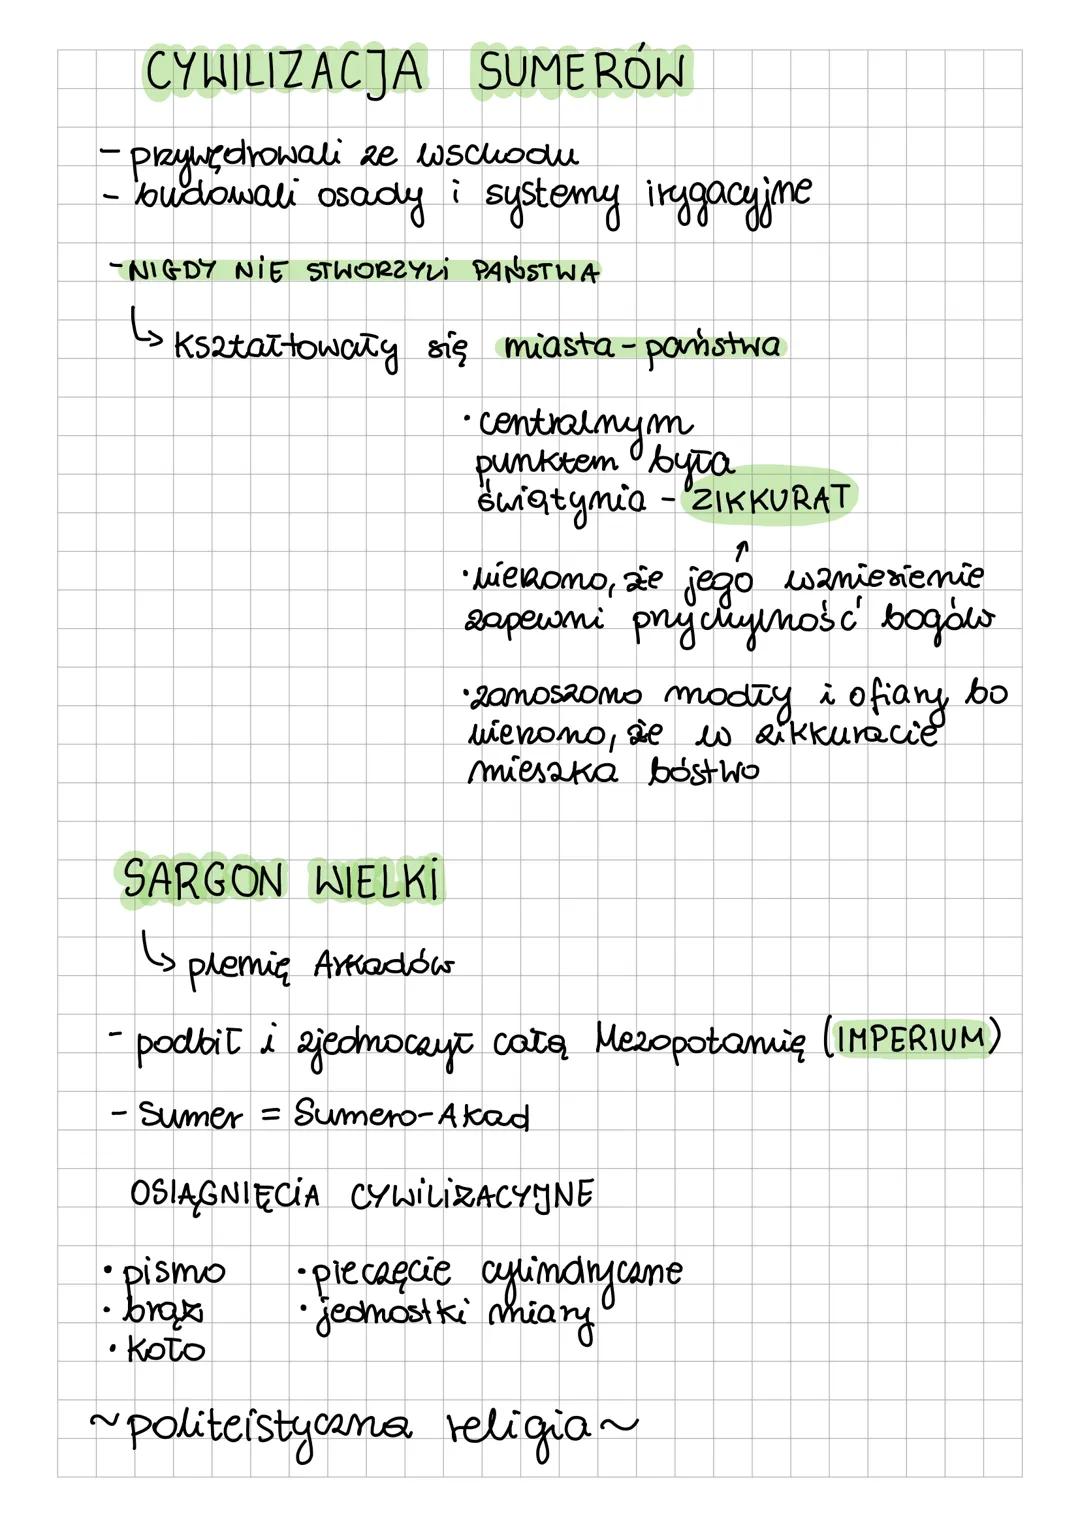 CYWILIZACJA SUMERÓW
- przywędrowali ze wschodu
- budowali osady i systemy irygacyjne
- NIGDY NIE STWORZYLI PAŃSTWA
↳ kształtowały się miasta-państwa
• centralnym
punktem była
świątynia - ZIKKURAT
↑
• wierzono, że jego wzniesienie
zapewni przychylność bogów
• zanoszono modły i ofiary bo
wierzono, że w zikkuracie
mieszka bóstwo
SARGON WIELKI
↳ plemię Akkadów
- podbił i zjednoczył całą Mezopotamię (IMPERIUM)
- Sumer = Sumero-Akad
OSIĄGNIĘCIA CYWILIZACYJNE
• pismo • pieczęcie cylindryczne
• brąz • jednostki miary
• koło
~ politeistyczna religia ~